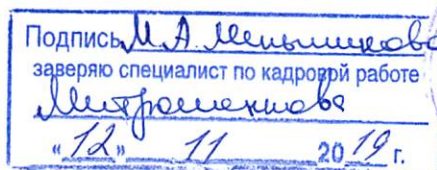 Подпись М.А. Меньшикова
заверяю специалист по кадровой работе
Митрошенкова
"12" 11 2019 г.